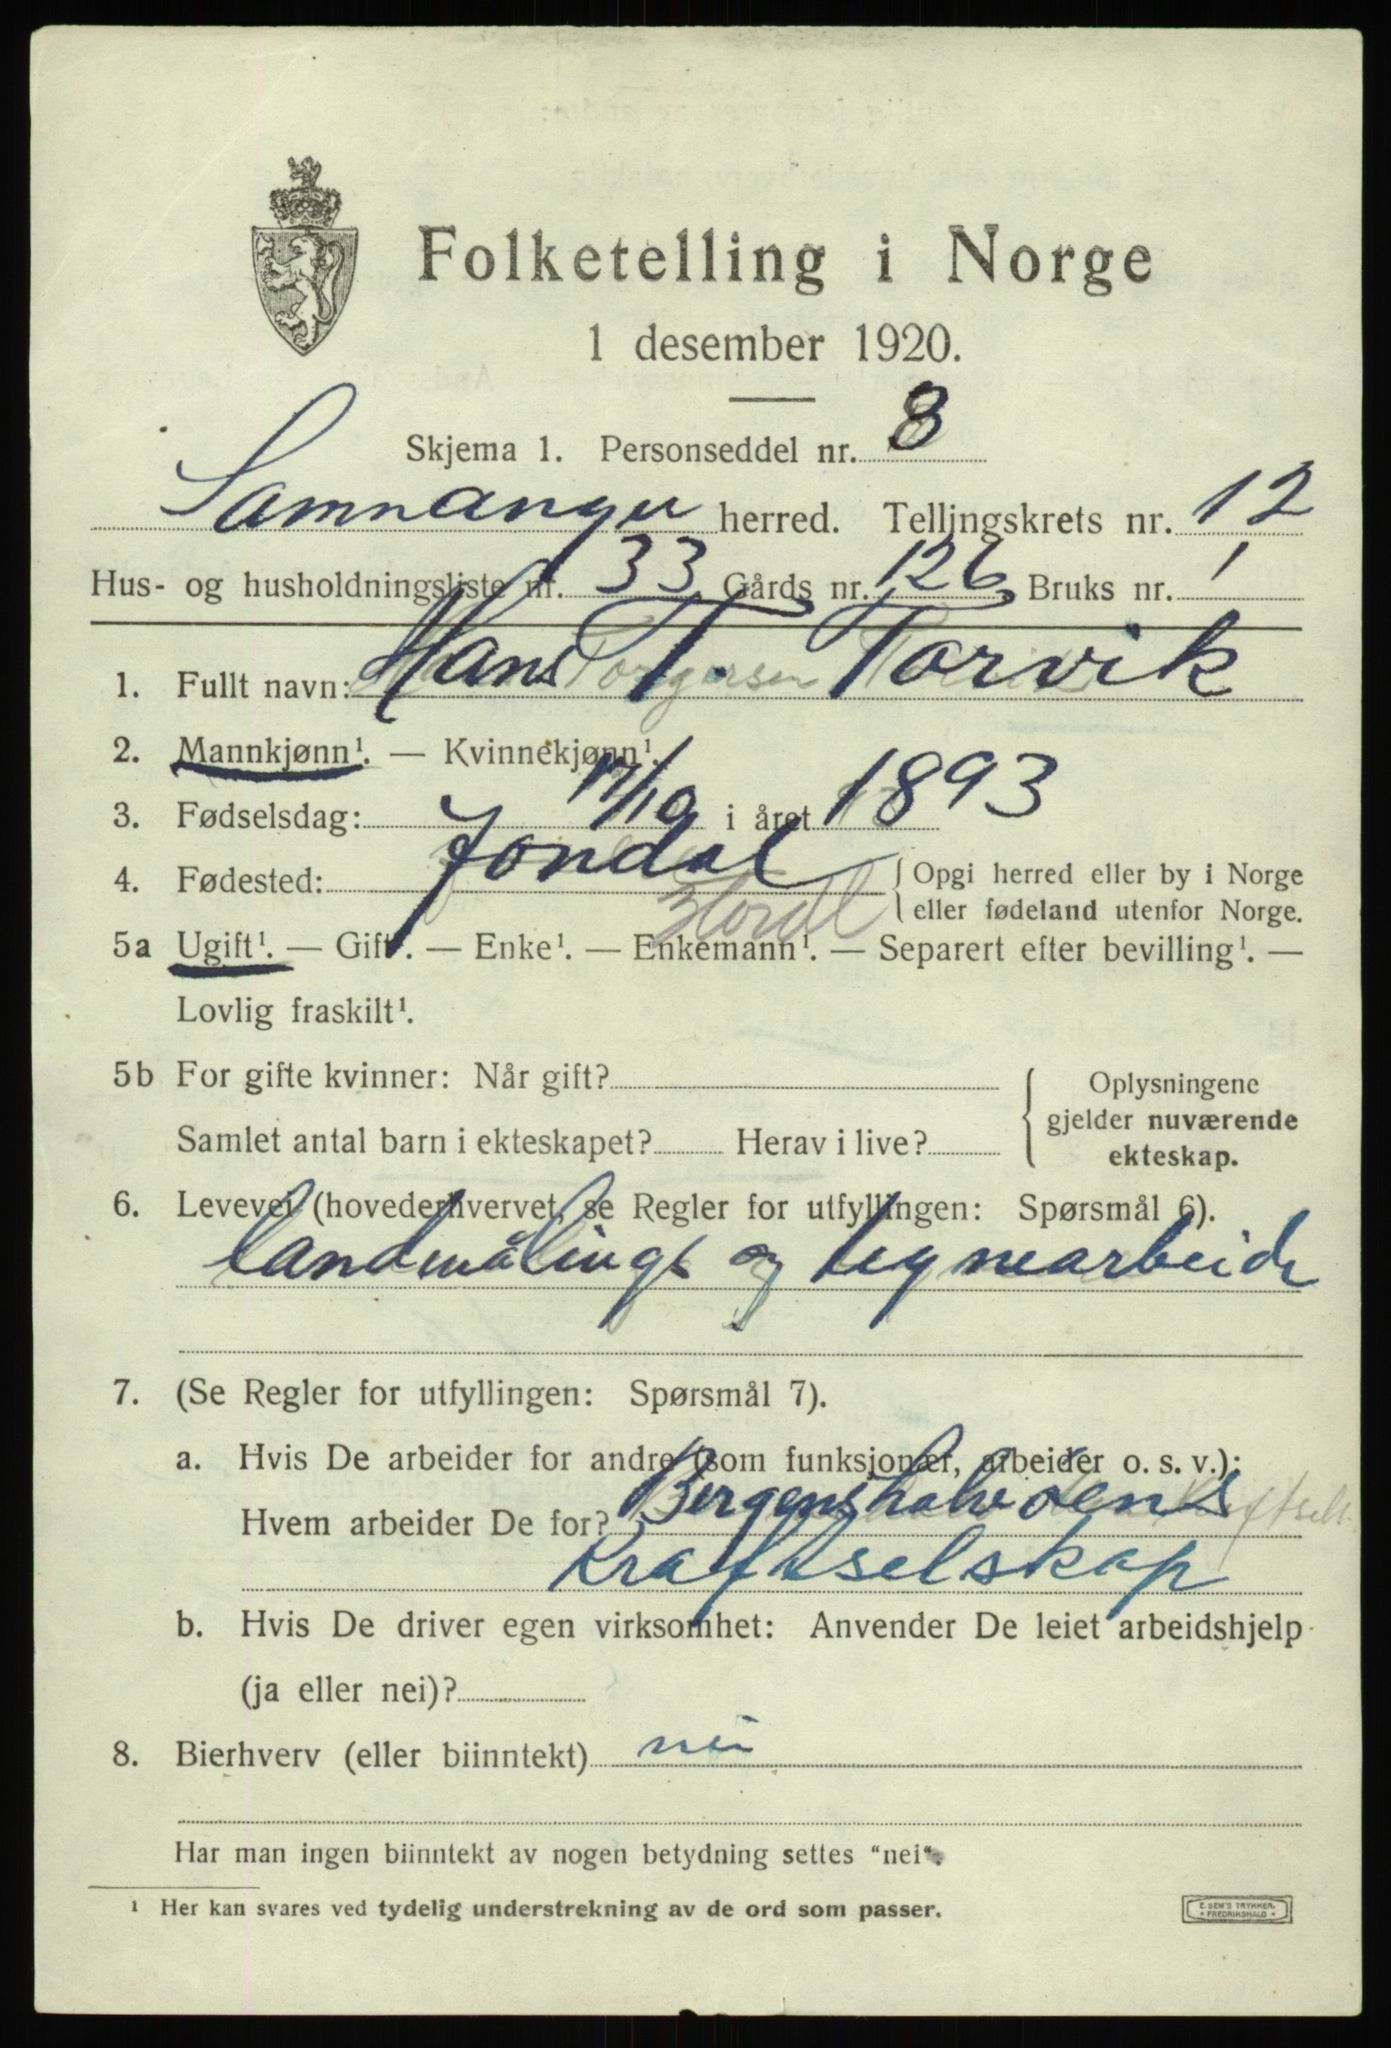 Folketelling i Norge
1 desember 1920.
Skjema 1. Personseddel nr. 8
Samnanger herred. Tellingskrets nr. 12
Hus- og husholdningsliste nr. 33 Gårds nr. 126 Bruks nr. 1
1. Fullt navn: Hans T. Torvik
Torgersen
2. Mannkjønn¹. — Kvinnekjønn¹.
3. Fødselsdag: 17/10 i året 1893
4. Fødested: Jondal { Opgi herred eller by i Norge
eller fødeland utenfor Norge.
Hordl
5a Ugift¹. — Gift¹. — Enke¹. — Enkemann¹. — Separert efter bevilling¹. —
Lovlig fraskilt¹.
5b For gifte kvinner: Når gift? { Oplysningene
gjelder nuværende
ekteskap.
Samlet antal barn i ekteskapet? Herav i live?
6. Levevei (hovederhvervet, se Regler for utfyllingen: Spørsmål 6).
landmålings og tegnearbeide
7. (Se Regler for utfyllingen: Spørsmål 7).
a. Hvis De arbeider for andre (som funksjonær, arbeider o. s. v.):
Hvem arbeider De for? Bergenshalvøens
Kraftselskap
b. Hvis De driver egen virksomhet: Anvender De leiet arbeidshjelp
(ja eller nei)?
8. Bierhverv (eller biinntekt) nei
Har man ingen biinntekt av nogen betydning settes "nei".
¹ Her kan svares ved tydelig understrekning av de ord som passer.
E. SEM'S TRYKKERI,
• FREDRIKSHALD •